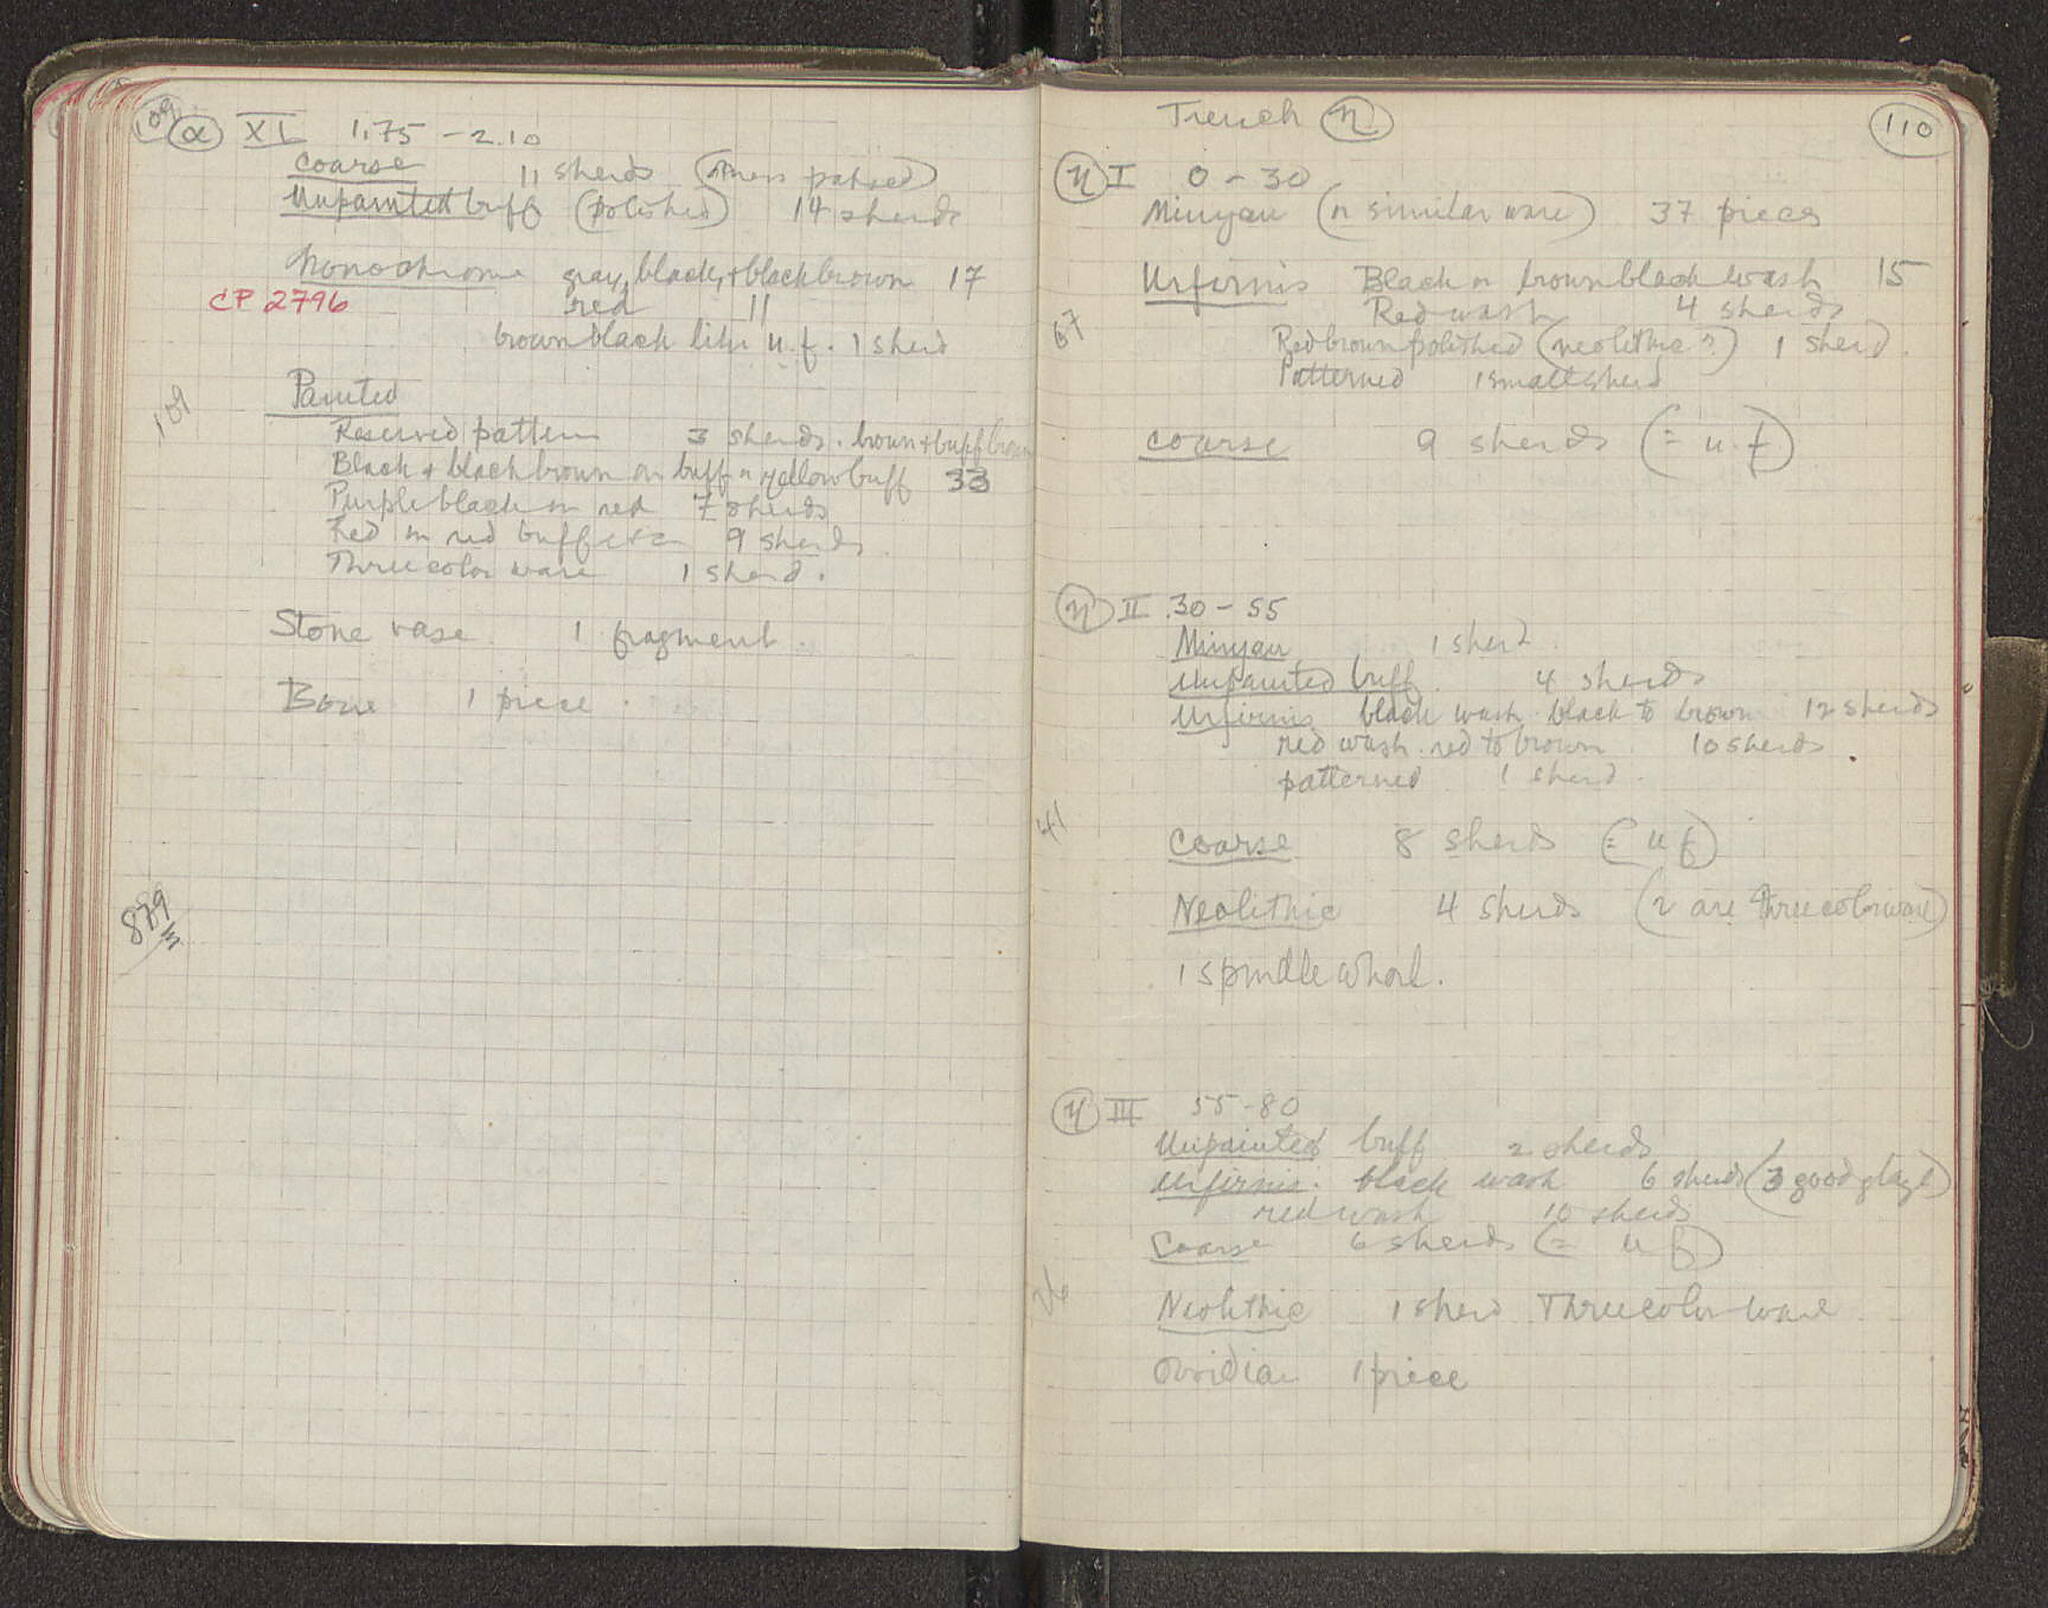 109
α XI 1.75 - 2.10
Coarse 11 sherds
Unpainted buff (polished) 14 sherds
Monochrome gray, black, + blackbrown 17
CP 2796
red 11
brownblack like u.f. 1 sherd
Painted
109
Reserved pattern 3 sherds. brown + buff brown
Black + blackbrown on buff or yellowbuff 33
Purpleblack on red 7 sherds
Red on red buff etc 9 sherds
Three color ware 1 sherd.
Stone vase 1 fragment.
Bone 1 piece.
879
Trench η
110
η I 0 - 30
Minyan (or similar ware) 37 pieces
Urfirnis Black or brownblack wash 15
Red wash 4 sherds
67
Redbrown polished (neolithic?) 1 sherd.
Patterned 1 small sherd
coarse 9 sherds (= u.f)
η II .30 - 55
Minyan 1 sherd.
Unpainted buff. 4 sherds
Urfirnis black wash black to brown 12 sherds
red wash. red to brown 10 sherds.
patterned 1 sherd.
41
Coarse 8 sherds (= u f)
Neolithic 4 sherds (2 are Threecolorware)
1 spindle whorl.
η III 55 - 80
Unpainted buff 2 sherds
Urfirnis: black wash 6 sherds (3 good glaze)
red wash 10 sherds
Coarse 6 sherds (= u f)
26
Neolithic 1 sherd Threecolor ware
Obsidian 1 piece